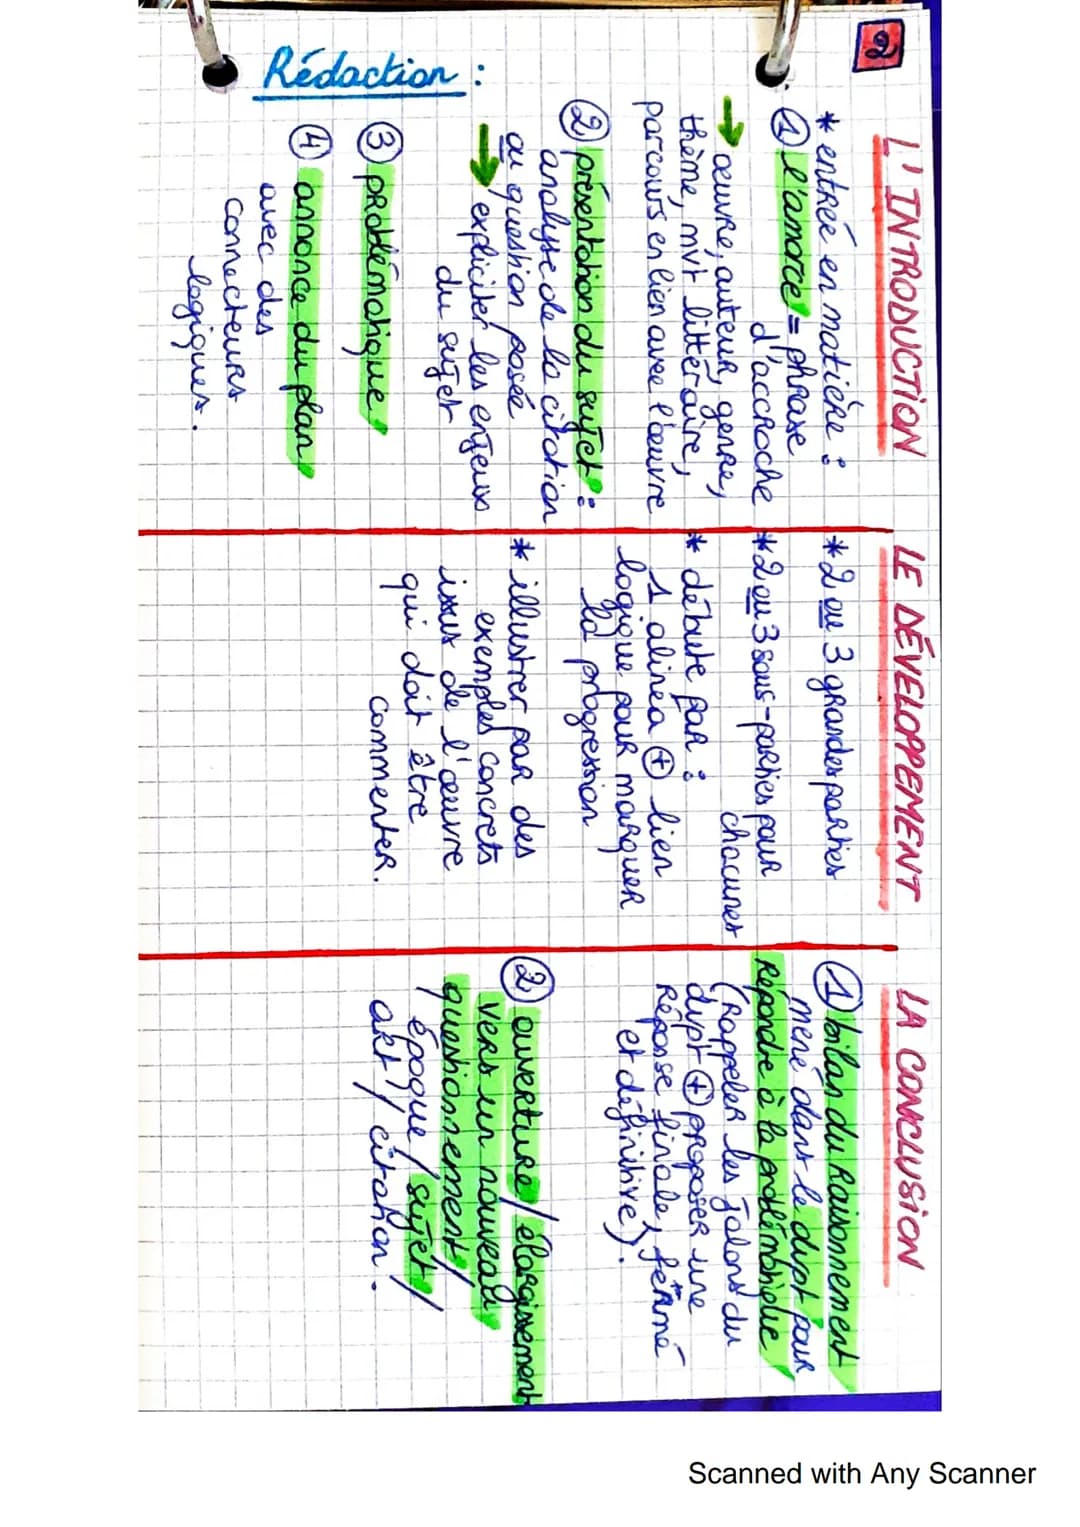 2
Rédaction :
L'INTRODUCTION
* entrée en matière :
① l'amorce = phrase
d'accroche
→ œuvre, auteur, genre,
thème, mvt littéraire,
parcours en lien avec l'œuvre
② présentation du sujet :
analyse de la citation
ou question posée
→ expliciter les enjeux
du sujet
③ problématique
④ annonce du plan
avec des
connecteurs
logiques.
LE DÉVELOPPEMENT
* 2 ou 3 grandes parties
* 2 ou 3 sous-parties pour
chacunes
* débute par :
1 alinéa ⊕ lien
logique pour marquer
la progression
* illustrer par des
exemples concrets
issus de l'œuvre
qui doit être
commenter.
LA CONCLUSION
① bilan du raisonnement
mené dans le dvpt pour
répondre à la problématique
(rappeler les jalons du
dvpt ⊕ proposer une
réponse finale, fermé
et définitive).
② ouverture / élargissement
vers un nouveau
questionnement /
époque / sujet /
art / citation.
Scanned with Any Scanner